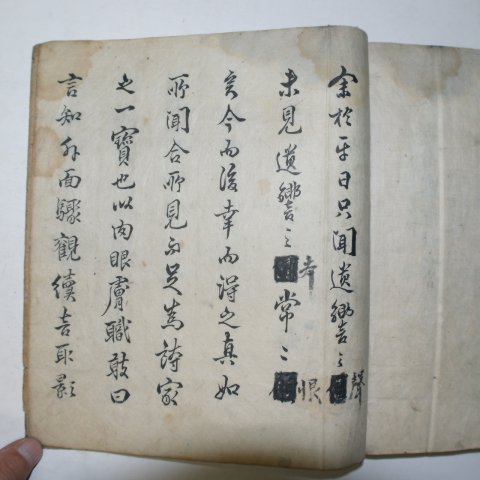 余於平日只聞遺響之聲
未見遺響之本常之恨
矣今而後幸而得之真如
所聞合所見而足為詩家
之一寶也以肉眼膚職敢曰
言知外面驟觀續吉取影